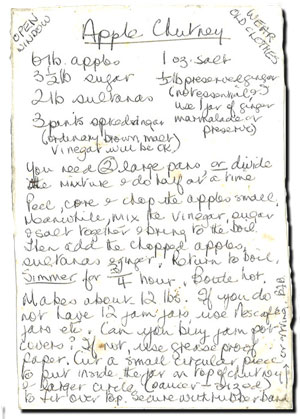 OPEN WINDOW
Apple Chutney
WEAR OLD CLOTHES
6 lb. apples
1 oz. salt
3½ lb sugar
½ lb preserved ginger
2 lb sultanas
(not essential)
use 1 jar of ginger
3 pints spiced vinegar
marmalade or
(ordinary brown malt
preserve)
vinegar will be OK)
You need 2 large pans, or divide
the mixture & do half at a time
Peel, core & chop the apples small.
Meanwhile, mix the vinegar, sugar
& salt together & bring to the boil.
Then add the chopped apples,
sultanas & ginger. Return to boil.
Simmer for ¾ hour. Bottle hot.
Makes about 12 lbs. If you do
not have 12 jam jars use Nescafe
jars etc. Can you buy jam pot
covers? If not, use grease proof
paper. Cut a small circular piece
to put inside the jar on top of chutney
& larger circle (saucer-sized)
to fit over top. Secure with rubber band
or string